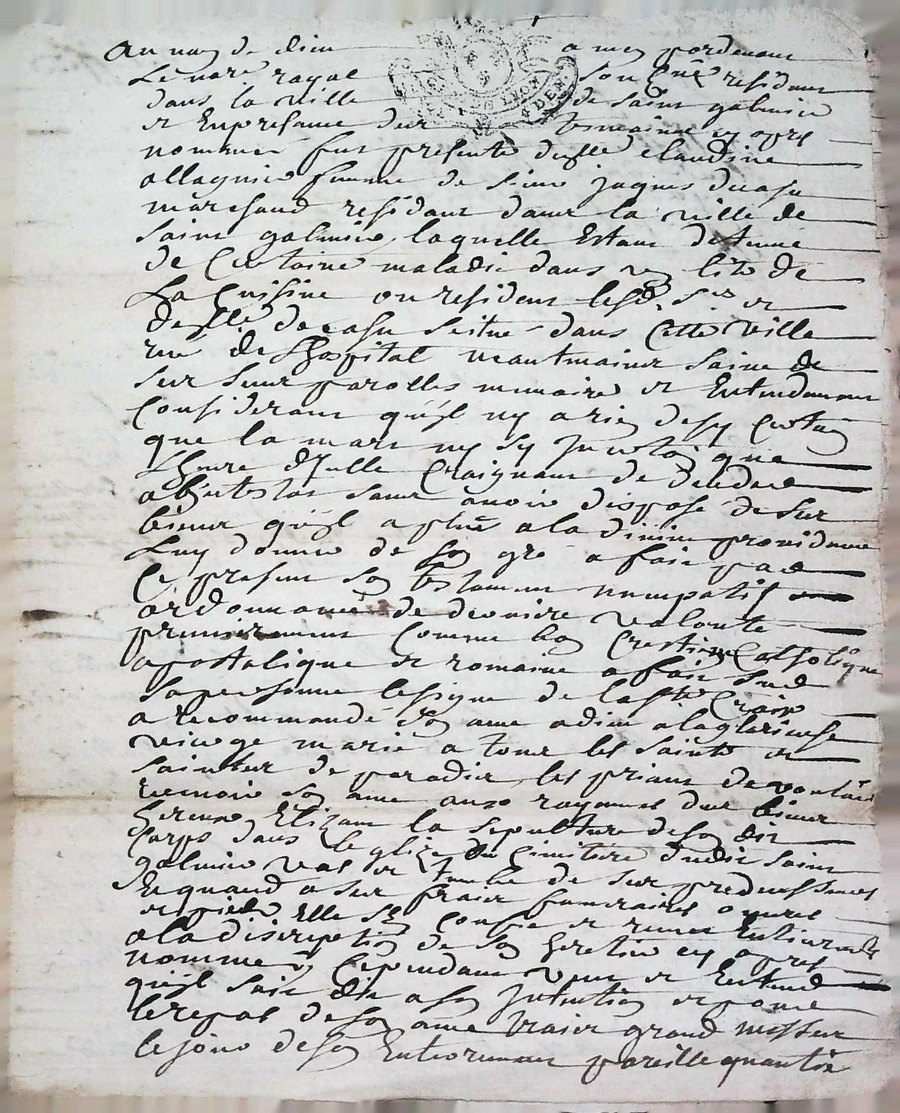 Au nom de dieu a mes pardevant
Le no.re royal Soubne residant
dans la ville de saint galmier
et En presance des temoins cy apres
nommes fut presente dlle claudine
allagnier femme de sieur jaques ducasu
marchand residant dans la ville de
saint galmier, laquelle Estant detenue
de Certaine maladie dans un lit de
La Cuisine ou resident lesd. Srs et
delle ducasu scitué dans Cette ville
rue de Lhopital neantmoins saine de
ses sens parolles memoire et Entendement
Considerant quil ny a rien de sy Certain
que la mort ny sy Incertain que
Lheure d'Icelle Craignant de deceder
abintestat sans avoir dispose de ses
biens quil a plus a la divine providence
Luy donner de son gre a fait par
Ce present son testament nuncupatif
ordonnance de derniere volonte
premierement comme bon Crestien Catholique
apostolique et romaine a fait sur
sa personne le signe de la ste Croix
a recommandé son ame a dieu a la glorieuse
vierge marie a tous les saints et
saintes de paradis les priant de vouloir
recevoir son ame aux royaumes des bien
hereux Elizant la sepulture de son dit
Corps dans Leglize ou Cimitiere dudit saint
galmier vas et tombe de ses predecesseurs
Et quand a ses fraix funeraires œuvres
et pies Elle sen Confie et remet Entierement
a la discretion de son heretier cy apres
nomme Cependant veut et Entend
quil soit dit a son Intention et pour
le repos de son ame traize grand messes
le jour de son Enterrement pareille quantité